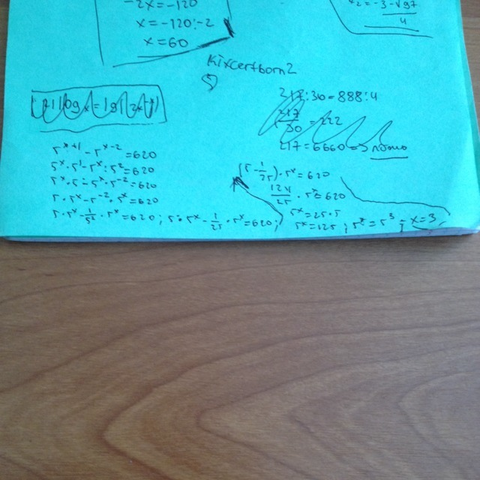 -2x=-120
x=-120:-2
x=60
x₂=-3-√97
4
Kixcertborn2
5)
217:30=888:4
217/30=222
217=6660=
5ˣ⁺¹-5ˣ⁻²=620
5ˣ·5¹-5ˣ:5²=620
5ˣ·5-5ˣ·5⁻²=620
5·5ˣ-5⁻²·5ˣ=620
5·5ˣ-1/5²·5ˣ=620; 5·5ˣ-1/25·5ˣ=620;
(5-1/25)·5ˣ=620
124/25·5ˣ=620
5ˣ=25·5
5ˣ=125; 5ˣ=5³; x=3